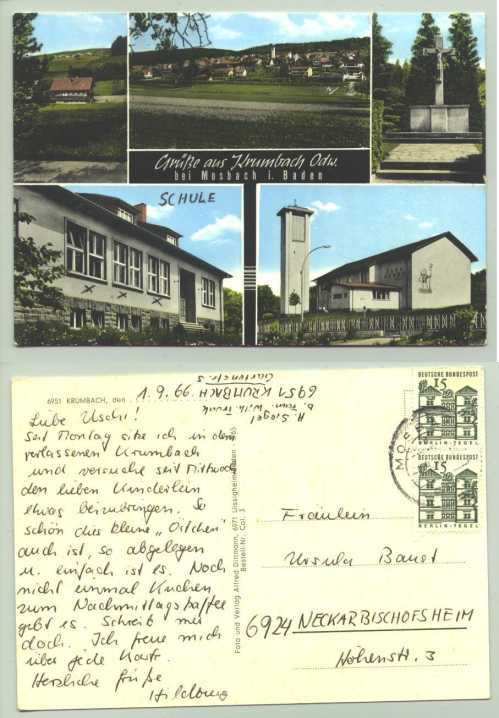 Grüße aus Krumbach Odw.
bei Mosbach i. Baden
SCHULE
6951 KRUMBACH, den
1.6.
6951 KRUMBACH
H. Siegel
Liebe Uschi!
Seit Montag sitze ich in dem
verlassenen Krumbach
und versuche seit Mittwoch
den lieben Kinderlein
etwas beizubringen. So
schön dies kleine „Örtchen"
auch ist, so abgelegen
u. einfach ist es. Noch
nicht einmal Kuchen
zum Nachmittagskaffee
gibt es. Schreib mir
doch. Ich freue mich
über jede Karte.
Herzliche Grüße
Hildburg
Foto und Verlag Alfred Dittmann, 6971
Bestell-Nr. Col. 3
DEUTSCHE BUNDESPOST
15
BERLIN-TEGEL
DEUTSCHE BUNDESPOST
15
BERLIN-TEGEL
MOS
Fräulein
Ursula Baust
6924 NECKARBISCHOFSHEIM
Höhenstr. 3